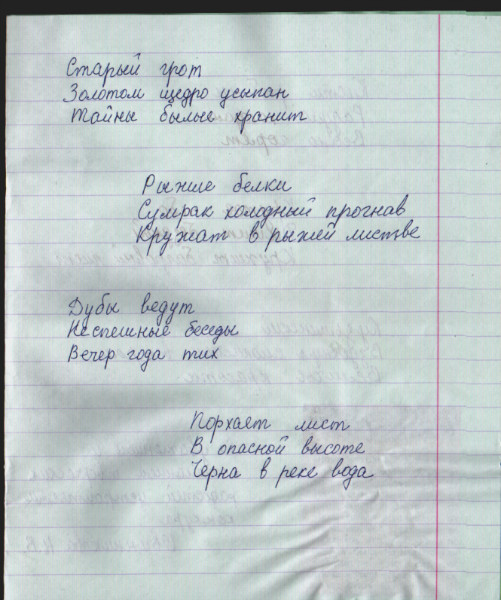 Старый грот
Золотом щедро усыпан
Тайны былые хранит
Рыжие белки
Сумрак холодный прогнав
Кружат в рыжей листве
Дубы ведут
Неспешные беседы
Вечер года тих
Порхает лист
В опасной высоте
Черна в реке вода